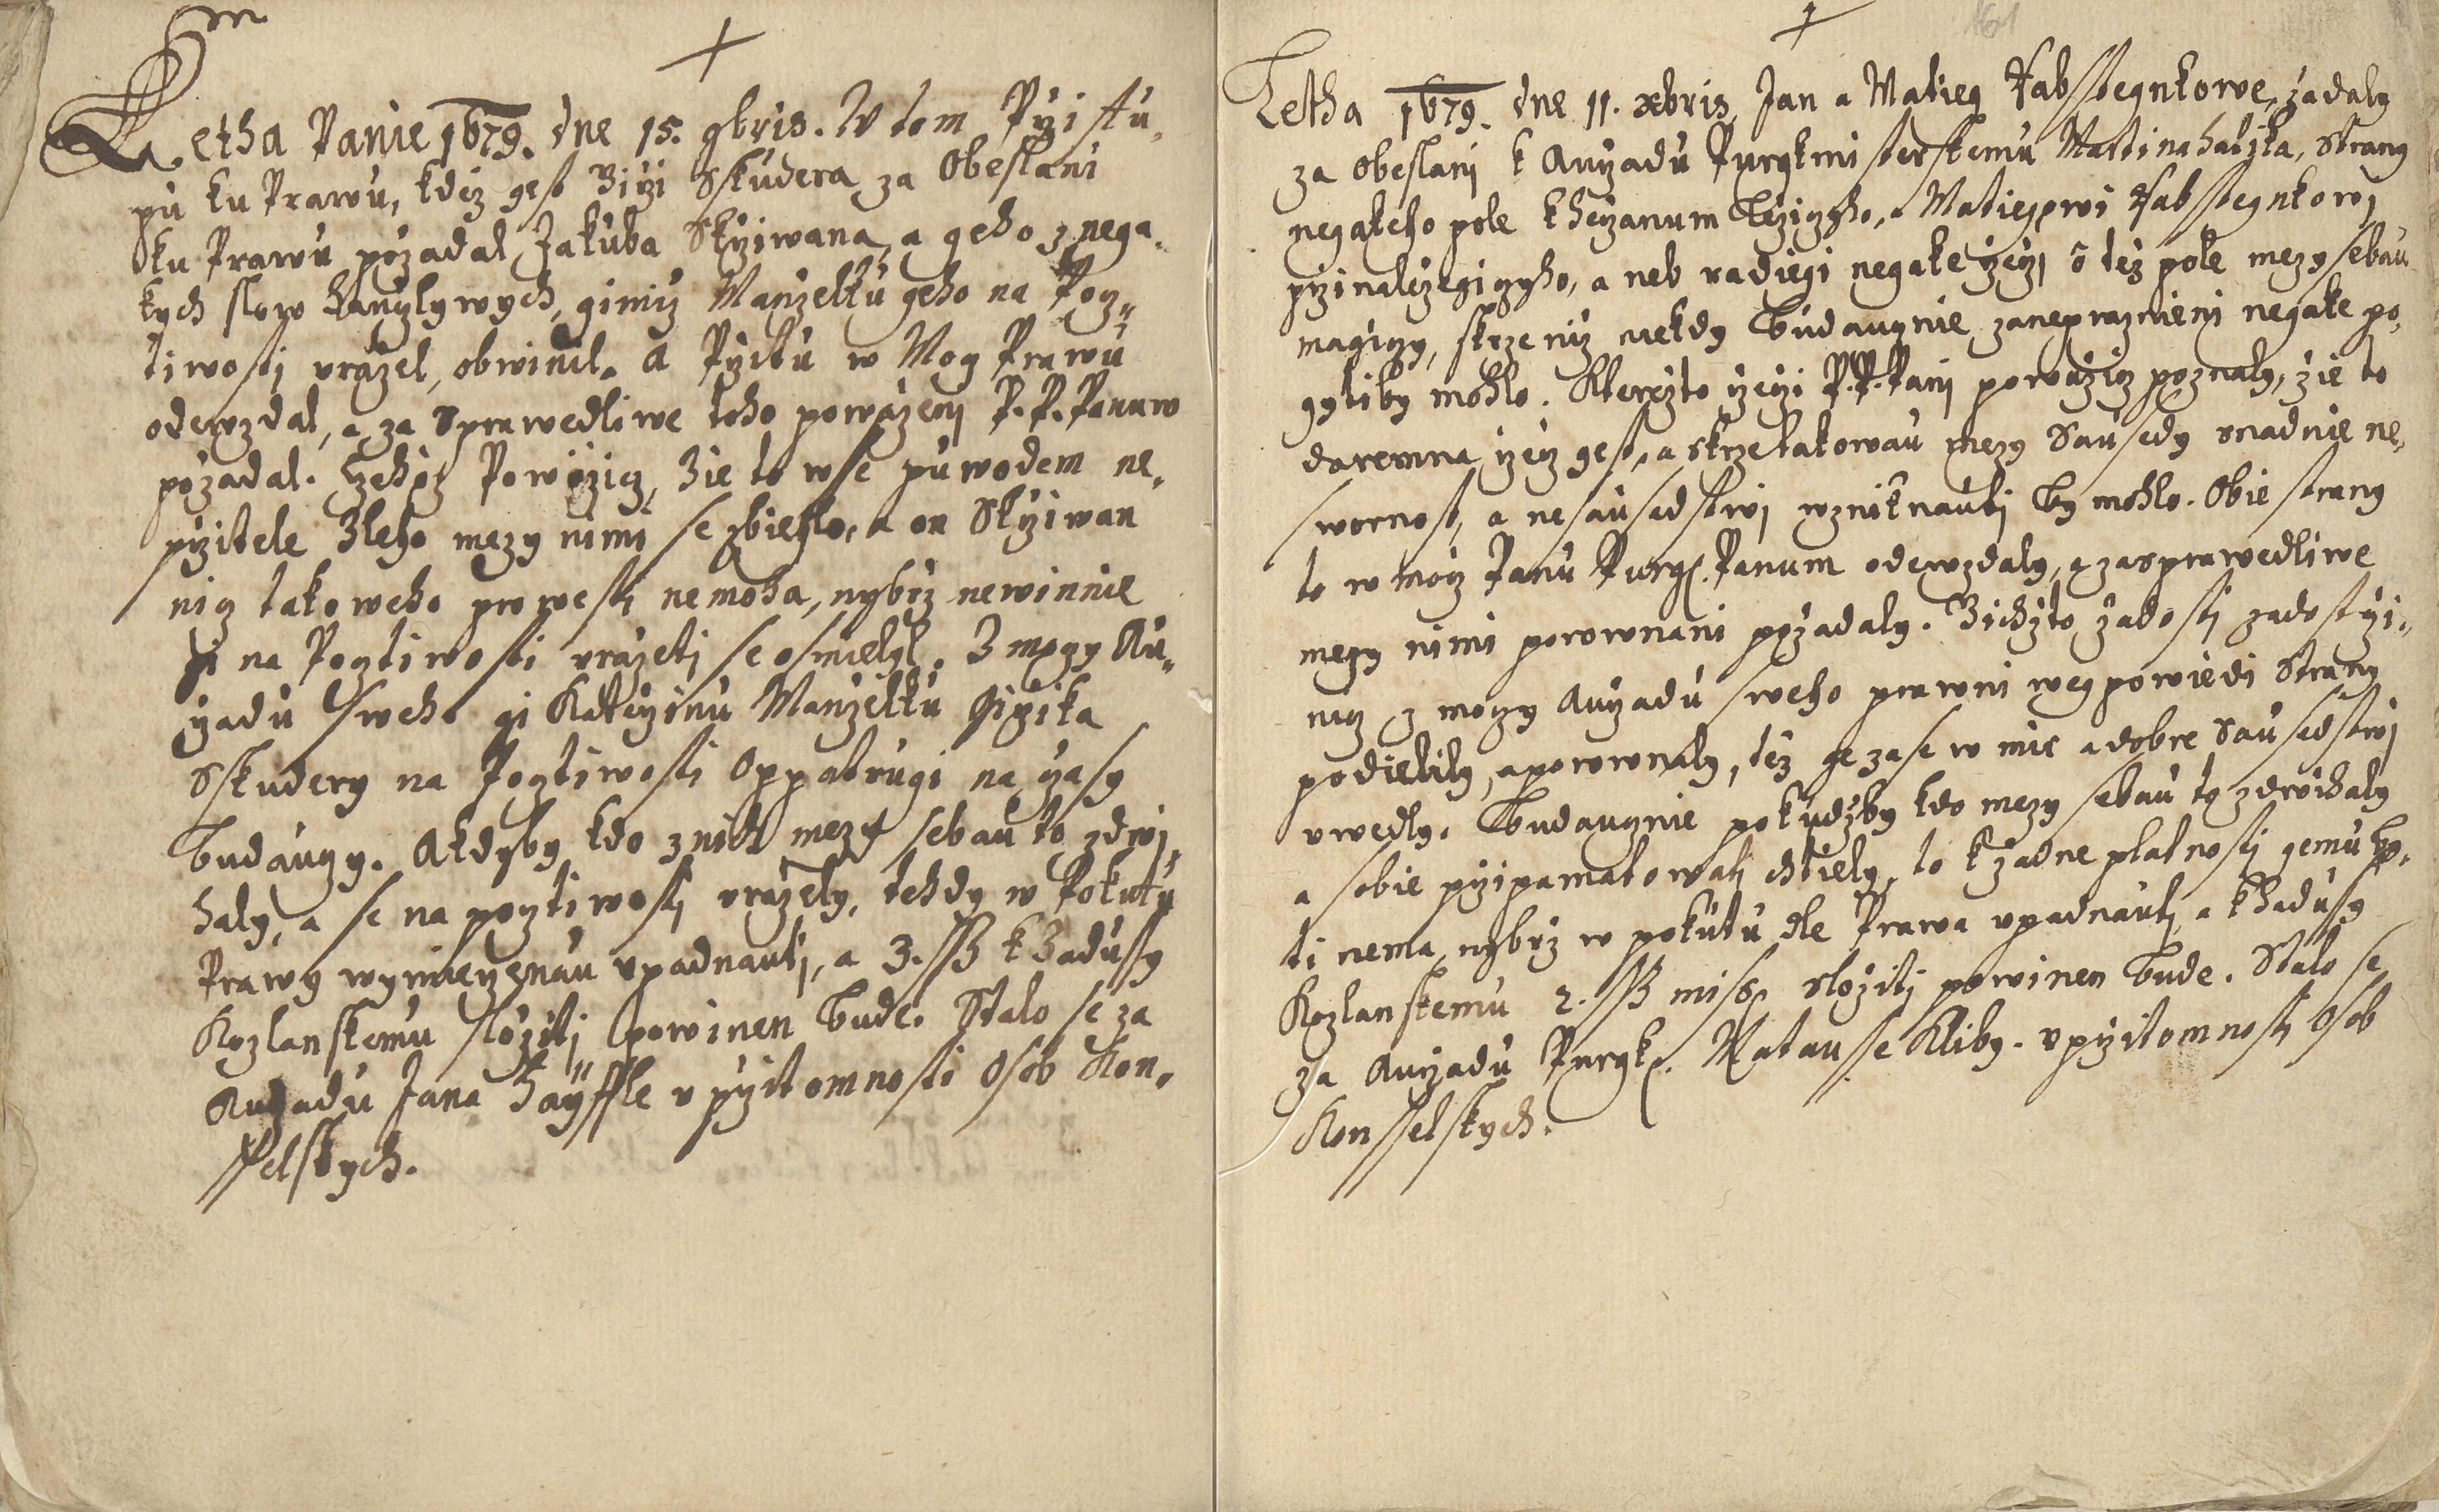 Letha Panie 1679. dne 15. 9bris. W tom Przistu,
pu ku Prawu, kdiz gest Girzi Skudera za Obeslani
ku Prawu pozadal Jakuba Skrziwana, a geho z nega,
kych slow hanzlywych, gimiz Manzelku geho na Pocz„
tiwosti urazel, obwinil. A Przitu w Mog Prawu
odewzdal, a za Sprawedliwe toho powazeni P. P. Panuw
pozadal. Czehoz Powazicz, Zie to wse puwodem ne,
przitele Zleho mezy nimi se zbiehlo, a on Skrziwan
nicz takoweho prowesti nemoha, nybrz newinnie
gi na Pocztiwosti urazeti se osmielyl. Z moczy Au„
rzadu sweho gi Katerzinu Manzelku Girzika
Skudery na Pocztiwosti Oppatrugi na czasy
Buduczy. A kdyby kdo z nich mezy sebau to zdwi„
haly, a se na pocztiwosti urazely, tehdy w Pokutu
Prawy wymierzenau upadnauti, a 3. ß k Zadussy
Kozlanskemu sloziti powinen Bude. Stalo se za
Aurzadu Jana Hayssle u przitomnosti Osob Kon,
sselskych.
161
Letha 1679. dne 11. xbris, Jan a Matieg Habstegnkowe, zadaly
za Obeslani k Aurzadu Purgkmisterskemu Martina Halzika, Strany
negakeho pole k Herzanum Lezicyho, Matiegowi Habstegnkowj
przinalezegicyho, a neb radiegi negake rzeczi o tez pole mezy sebau
magiczy, skrze niz nekdy Budauznie zaneprazneni negake po,
gytiby mohlo. Kterezto rzeczi P. P. Pani powazicz poznaly, zie to
daremna rzecz gest, a skrze takowau mezy Sausedy snadnie ne,
swornost, a nesausedstwj wzniknauti By mohlo. Obie strany
to w mocz Panu Purg. Panum odewzdaly, a za sprawedliwe
mezy nimi porownani pozadaly. Gichzto zadosti zadost czi„
nicz, z moczy Aurzadu sweho prawni wegpowiedi Strany
podielily, a porownaly, tez ge zase w mir a dobre Sausedstwj
uwedly. Budauznie pokudzby kdo mezy sebau to zdwihaly
a sobie przipamatowati chtiely, to k zadne platnosti gemu By,
ti nema, nybrz w pokutu dle Prawa upadnauti, a k Zadussy
Kozlanskemu 2. ß mis. sloziti powinen Bude. Stalo se
za Aurzadu Purgk. Matausse Kliby. u przitomnosti Osob
Konsselskych.